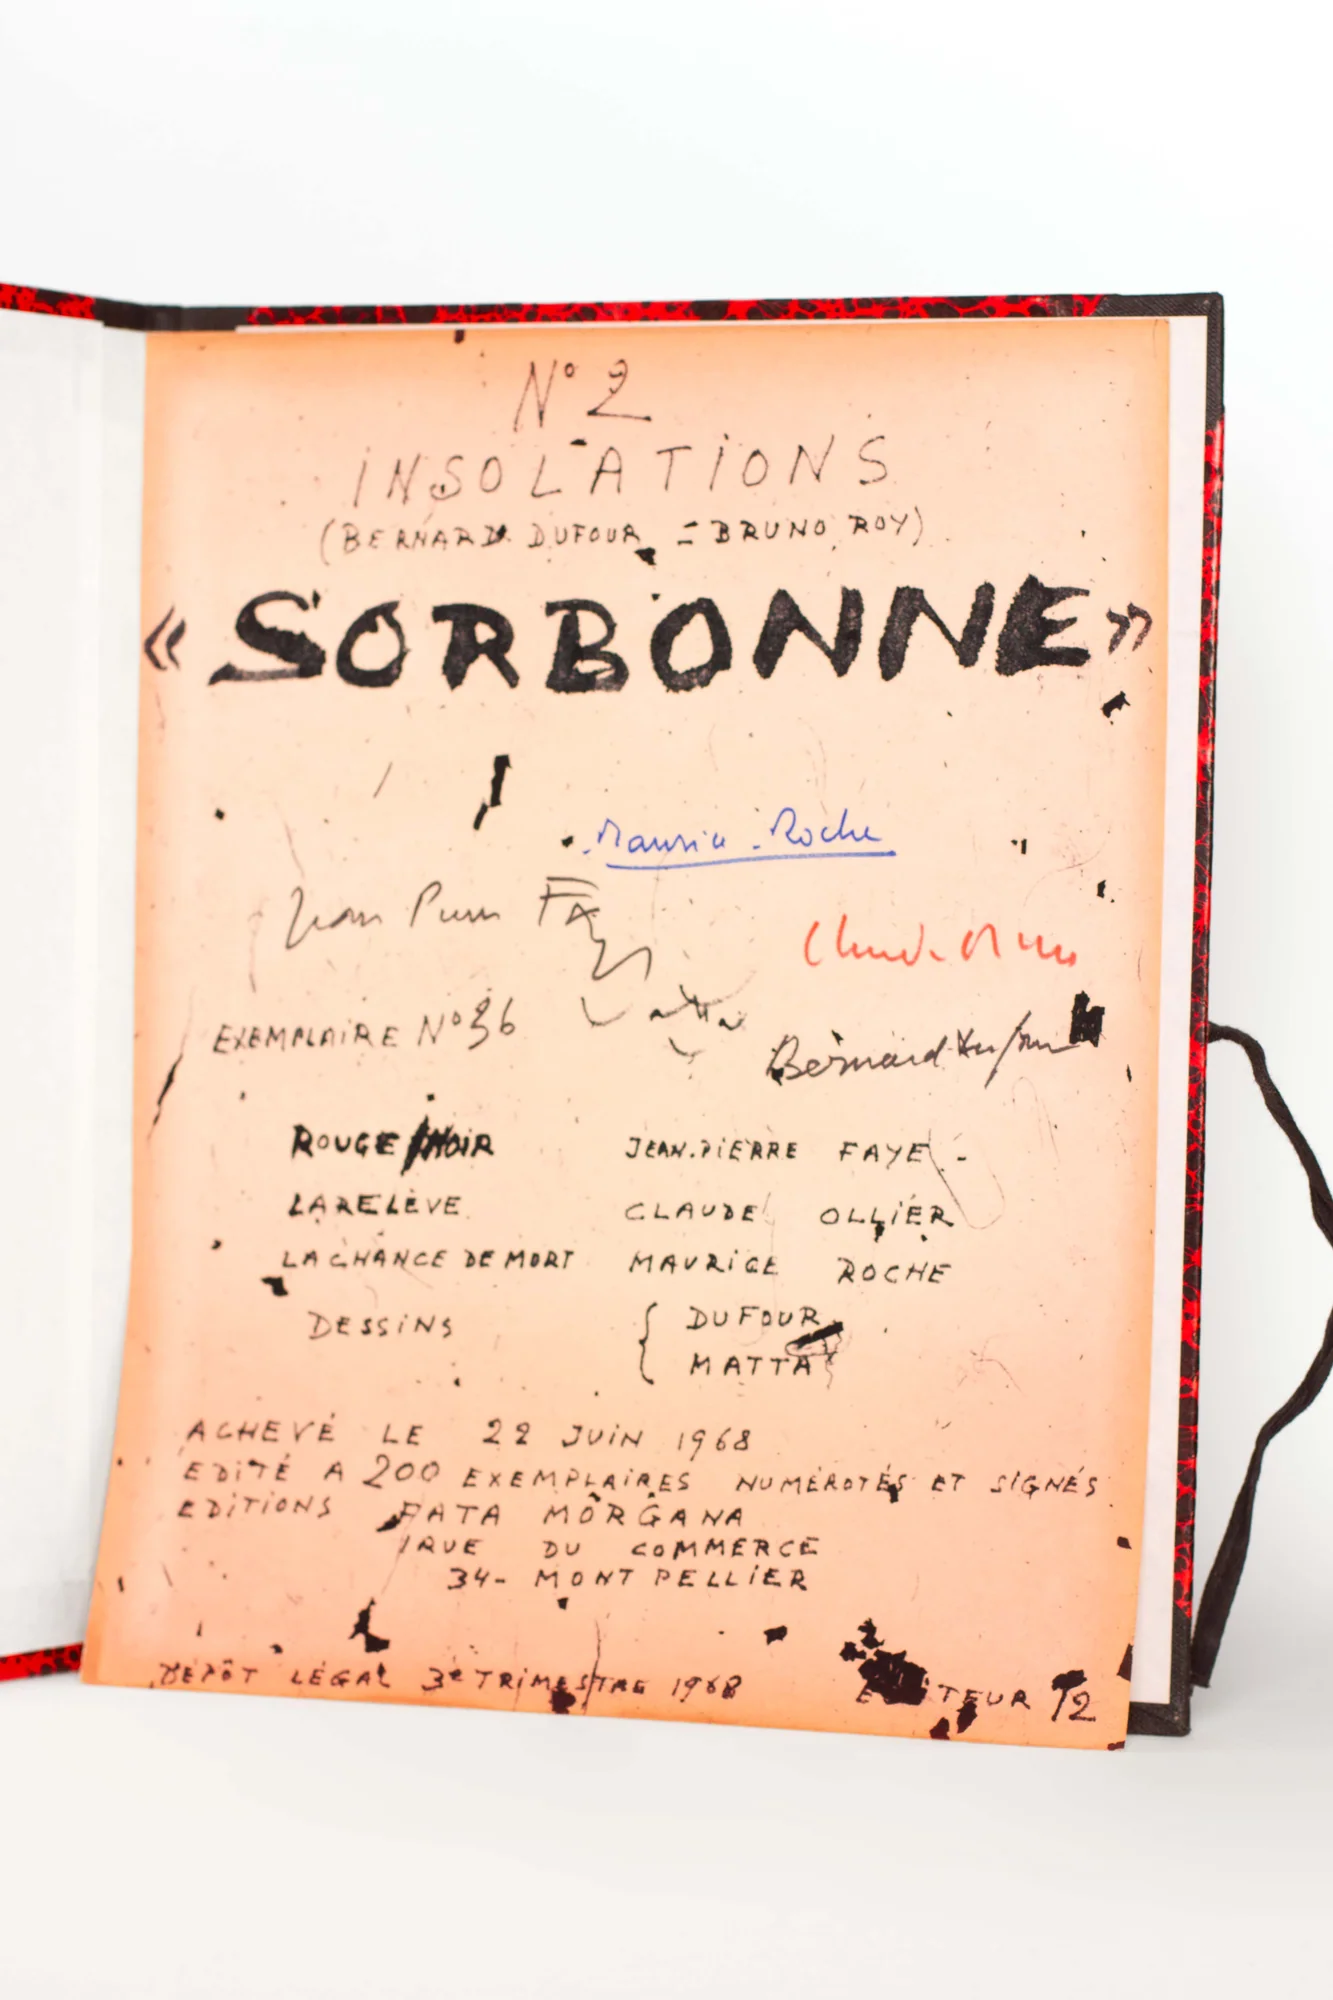 N° 2
INSOLATIONS
(BERNARD DUFOUR = BRUNO ROY)
« SORBONNE »
Maurice Roche
Jean Pierre Faye
Claude Ollier
Matta
EXEMPLAIRE N° 36
Bernard Dufour
ROUGE/NOIR JEAN.PIERRE FAYE -
LA RELÈVE CLAUDE OLLIER
LA CHANCE DE MORT MAURICE ROCHE
DESSINS { DUFOUR
MATTA
ACHEVÉ LE 22 JUIN 1968
EDITÉ A 200 EXEMPLAIRES NUMÉROTÉS ET SIGNÉS
EDITIONS FATA MORGANA
1 RUE DU COMMERCE
34- MONTPELLIER
DÉPÔT LÉGAL 3e TRIMESTRE 1968 EDITEUR 12